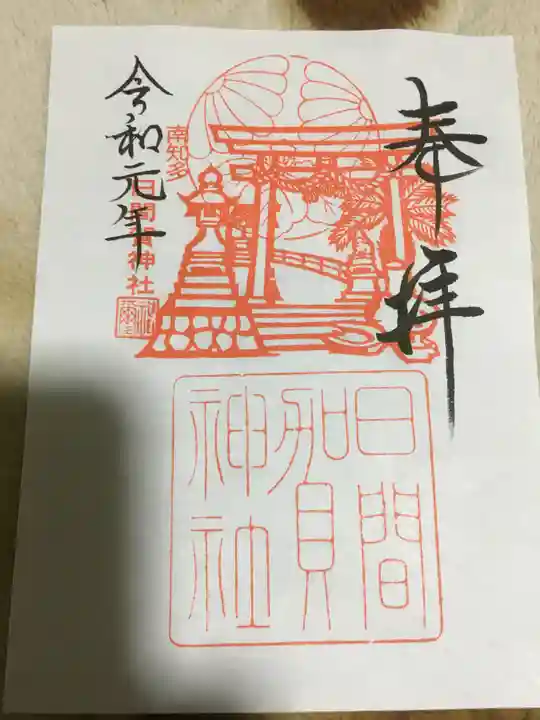 奉拝
日間賀神社
南知多
日間賀神社
令和元年